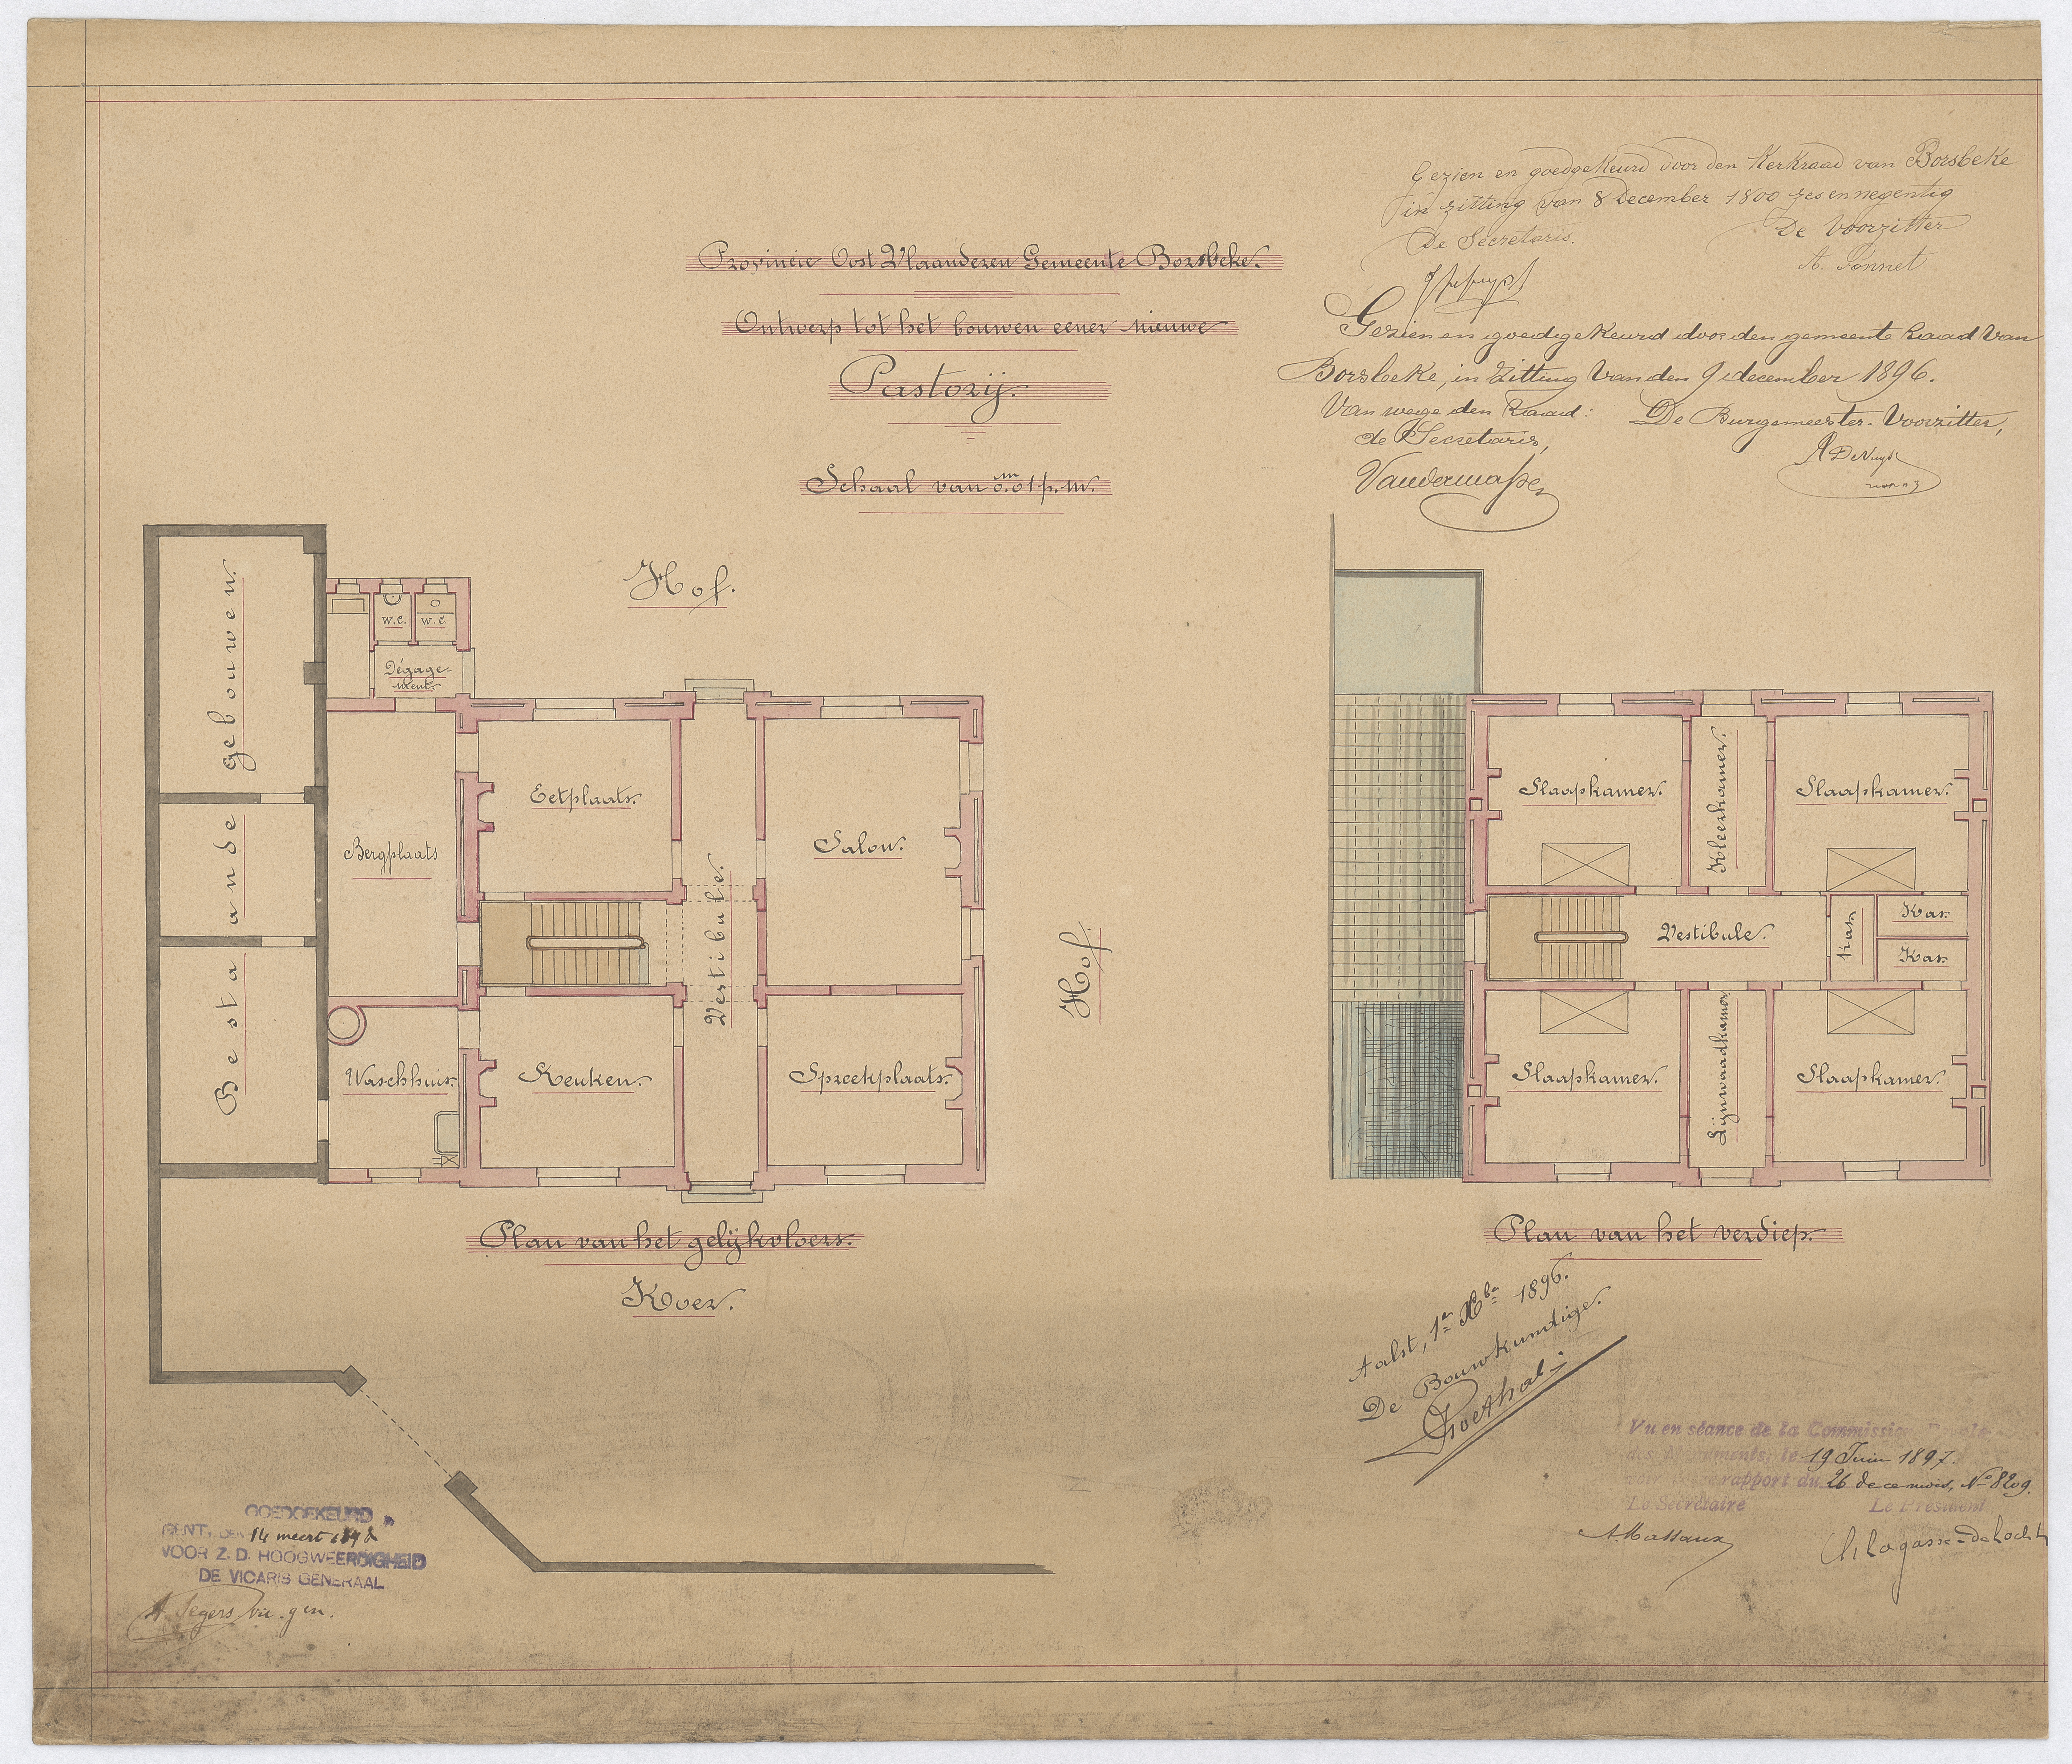 Gezien en goedgekeurd door den Kerkraad van Borsbeke
in zitting van 8 December 1800 zes en negentig
De Secretaris. De Voorzitter
A. Ponnet
Provincie Oost Vlaanderen Gemeente Borsbeke.
Ontwerp tot het bouwen eener nieuwe
Pastorij.
Schaal van 0.m01 p.m.
Gezien en goedgekeurd door den gemeente Raad van
Borsbeke, in Zitting van den 9 december 1896.
Van wege den Raad: De Burgemeester-Voorzitter,
de Secretaris,
Hof.
Bestaande gebouwen.
W.C.
W.C.
Dégage-
ment.
Bergplaats
Eetplaats.
Salon.
Vestibule.
Waschhuis.
Keuken.
Spreekplaats.
Hof.
Plan van het gelijkvloers.
Koer.
Slaapkamer.
Kleerkamer.
Slaapkamer.
Vestibule.
Kas.
Kas.
Kas.
Slaapkamer.
Lijnwaadkamer
Slaapkamer.
Plan van het verdiep.
Aalst, 1n Xbr 1896.
De Bouwkundige.
Goethals
GOEDGEKEURD
GENT, DEN 14 meert 1898
VOOR Z. D. HOOGWEERDIGHEID
DE VICARIS GENERAAL
A Segers vic. gen.
Vu en séance de la Commission Royale
des Monuments, le 19 Juin 1897.
rapport du 26 de ce mois, No 8209.
Le Secrétaire Le Président
A. Massaux